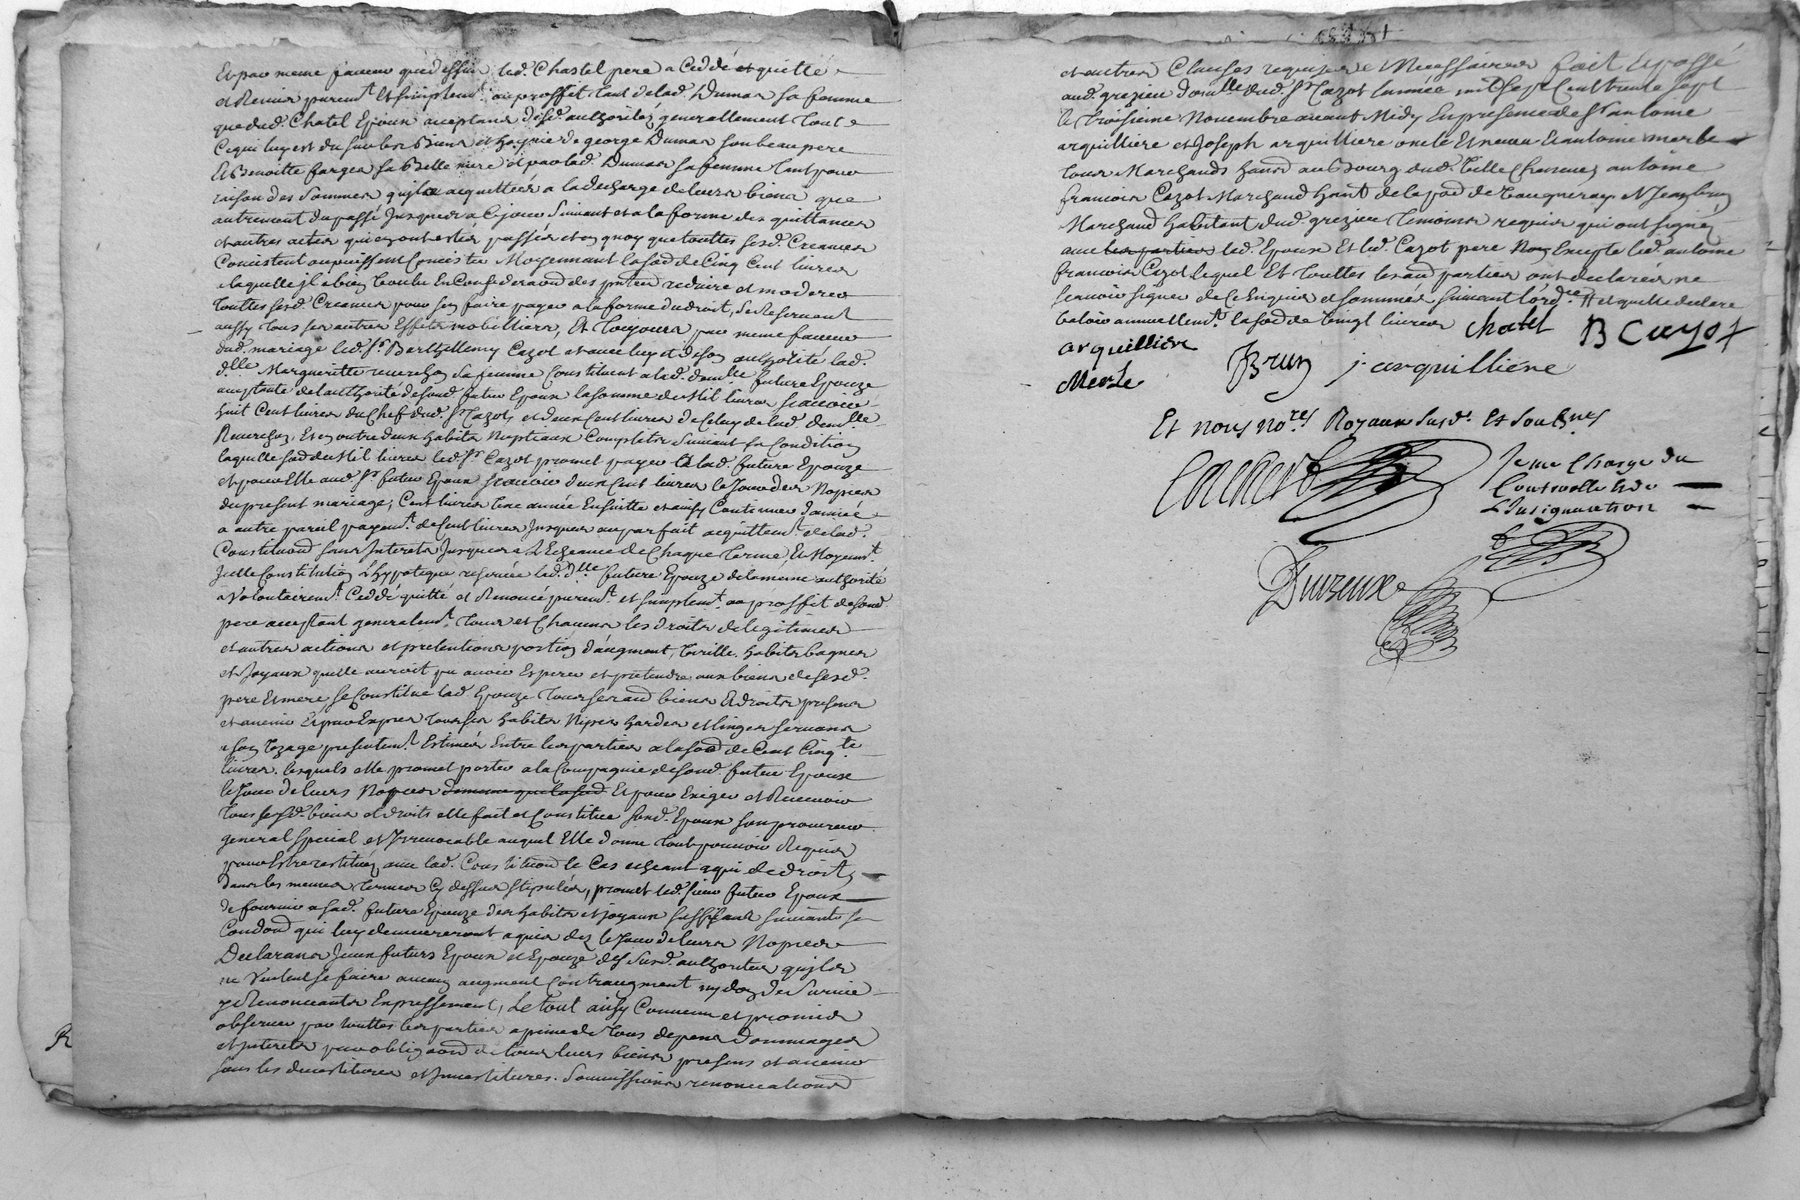 Et par meme faveur que dessus led. Chastel pere a Ceddé et quitté
et Remis purem.t Et simplem.t au proffit tant de lad. Dumas sa femme
que dud. Chatel Epoux acceptans desd. authoritez generallement toute
Ce qui luy est du sur les Biens et hoirie de george Dumas son beaupere
Et Benoitte farges sa Belle mere et par lad. Dumas sa femme tant pour
raison des sommes quil a acquittées a la decharge de leurs biens que
autrement du passé Jusques a Cejour Suivant et a la forme des quittances
et autres actes qui en ont estés passés et en quoy que touttes sesd. Creances
Consistent ou puissent Consister Moyennant la sad de Cinq Cent livres
a laquelle il a bien Voulu En Consideraõn des pnten reduire et moderer
touttes sesd. Creances pour sen faire payer a la forme du droit, se Reservant
aussy tous ses autres Effets mobilliers, Et Toujours par meme faveur
dud. mariage led. Sr. Barthellemy Cazot et avec luy et de son authorité lad.
d.lle Margueritte reverchon sa femme Constituent a lad. dem.lle future Epouze
acceptante de lauthorité de sond. futur Epoux la somme de Mil livres scavoir
huit Cent livres du Chef dud. Sr. Cazot, et deux Cent livres de Celuy de lad. dem.lle
Reverchon, Et en outre deux habits Nuptiaux Complets Suivant sa Condition
laquelle sad de Mil livres led. Sr. Cazot promet payer a lad. future Epouze
et pour Elle aud. Sr. futur Epoux scavoir deux Cent livres le Jour des Nopces
du present mariage, Cent livres Une année Ensuitte et ainsy Continuer dannée
a autre pareil payem.t de Cent livres Jusques au parfait acquittem.t de lad.
Constituaõn sans Interets Jusques a LEcheance de Chaque terme, Et Moyenn.t
Jcelle Constitution Lhypoteque reservée lad. d.lle future Epouze de la meme authorité
a Volontairem.t Ceddé quitté et Renoncé purem.t et simplem.t au proffit de sond.
pere acceptant generalem.t tous et Chacuns les droits de legitimes
et autres actions et pretentions portion daugment, Virille, habits bagues
et Joyaux quelle auroit pu avoir Esperer et pretendre aux biens de sesd.
pere Et mere se Constitue lad. Epouze tous ses aud biens Et droits presens
et avenir Et par Expres tous ses habits Nipes hardes et linges servans
a son Uzage presentem.t Estimés Entre les parties a la sad de Cent Cinq.te
livres. lesquels elle promet porter a la Compagnie de sond. futur Epoux
le Jour de leurs Nopces Et pour Exiger et Recevoir
tous sesd. biens et droits elle fait et Constitue sond. Epoux son procureur
general special et Irrevocable auquel Elle donne tout pouvoir Requis
pour Estre restituez avec lad. Constituaõn le Cas echeant a qui de droit,
dans les memes termes Cy dessus stipulés, promet led. sieur futur Epoux
de fournir a sad. future Epouze des habits et joyaux suffisants suivants sa
Condaõn qui luy demeureront acquis dez le Jour de leurs Nopces
Declarans Jceux futurs Epoux et Epouze des susd. authoritez quils
ne Veulent se faire aucun augment Contraugment ny don de Survie
y Renonceants Expressement, Le tout ainsy Convenu et promis
observer par touttes les parties a peine de Tous depens dommages
et Interets par obligaõn de tous leurs biens presens et avenir
sous les devestitures et Jnvestitures. soumissions renonciations
et autres Clauses requises et Necessaires fait Et passé
aud. grezieu Dom.lle dud. Sr. Cazot lannée mil Sept Cent trente sept
le troisieme Novembre avant Midy En presence de Sr. antoine
arquilliere et Joseph arquilliere oncle Et neveu Et antoine merle
tous Marchands hans au Bourg dud. antoine
francois Cazot Marchand hant de la pad de Vaugneray Et Jean brun
Marchand habitant dud. grezieu temoins requis qui ont signez
avec led. Epoux Et led. Cazot pere Non Excepte led. antoine
francois Cazot lequel Et touttes les aud parties ont declarés ne
scavoir signer de Ce Enquis et sommés suivant lord.ce # et quelle declare
valoir annuellem.t la sad de Vingt livres chatel B Cazot
arquilliere
Merle Brun j. arquilliere
Et nous No.res Royaux Susd. Et Soub.nés
Je me Charge du
Controolle Et de
LInsignuation